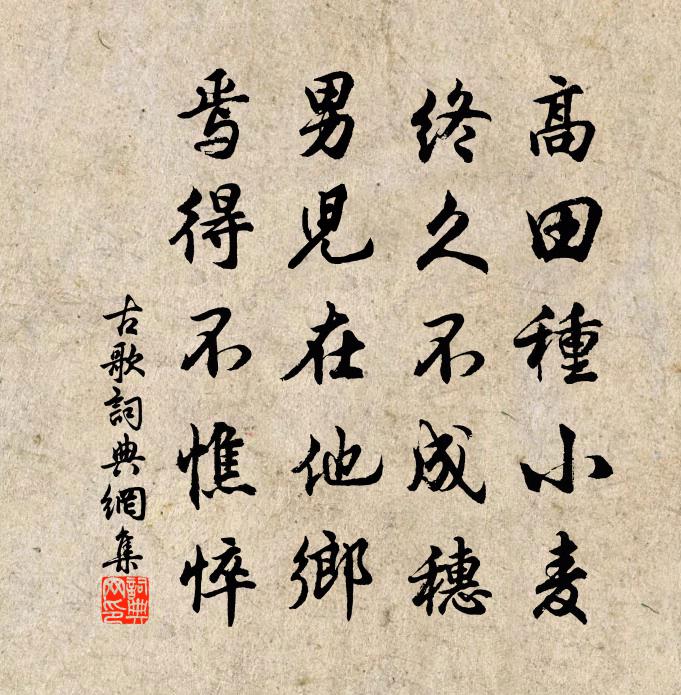 高田種小麦
終久不成穗
男児在他鄉
焉得不憔悴
古歌詞典網集
詞典
网印